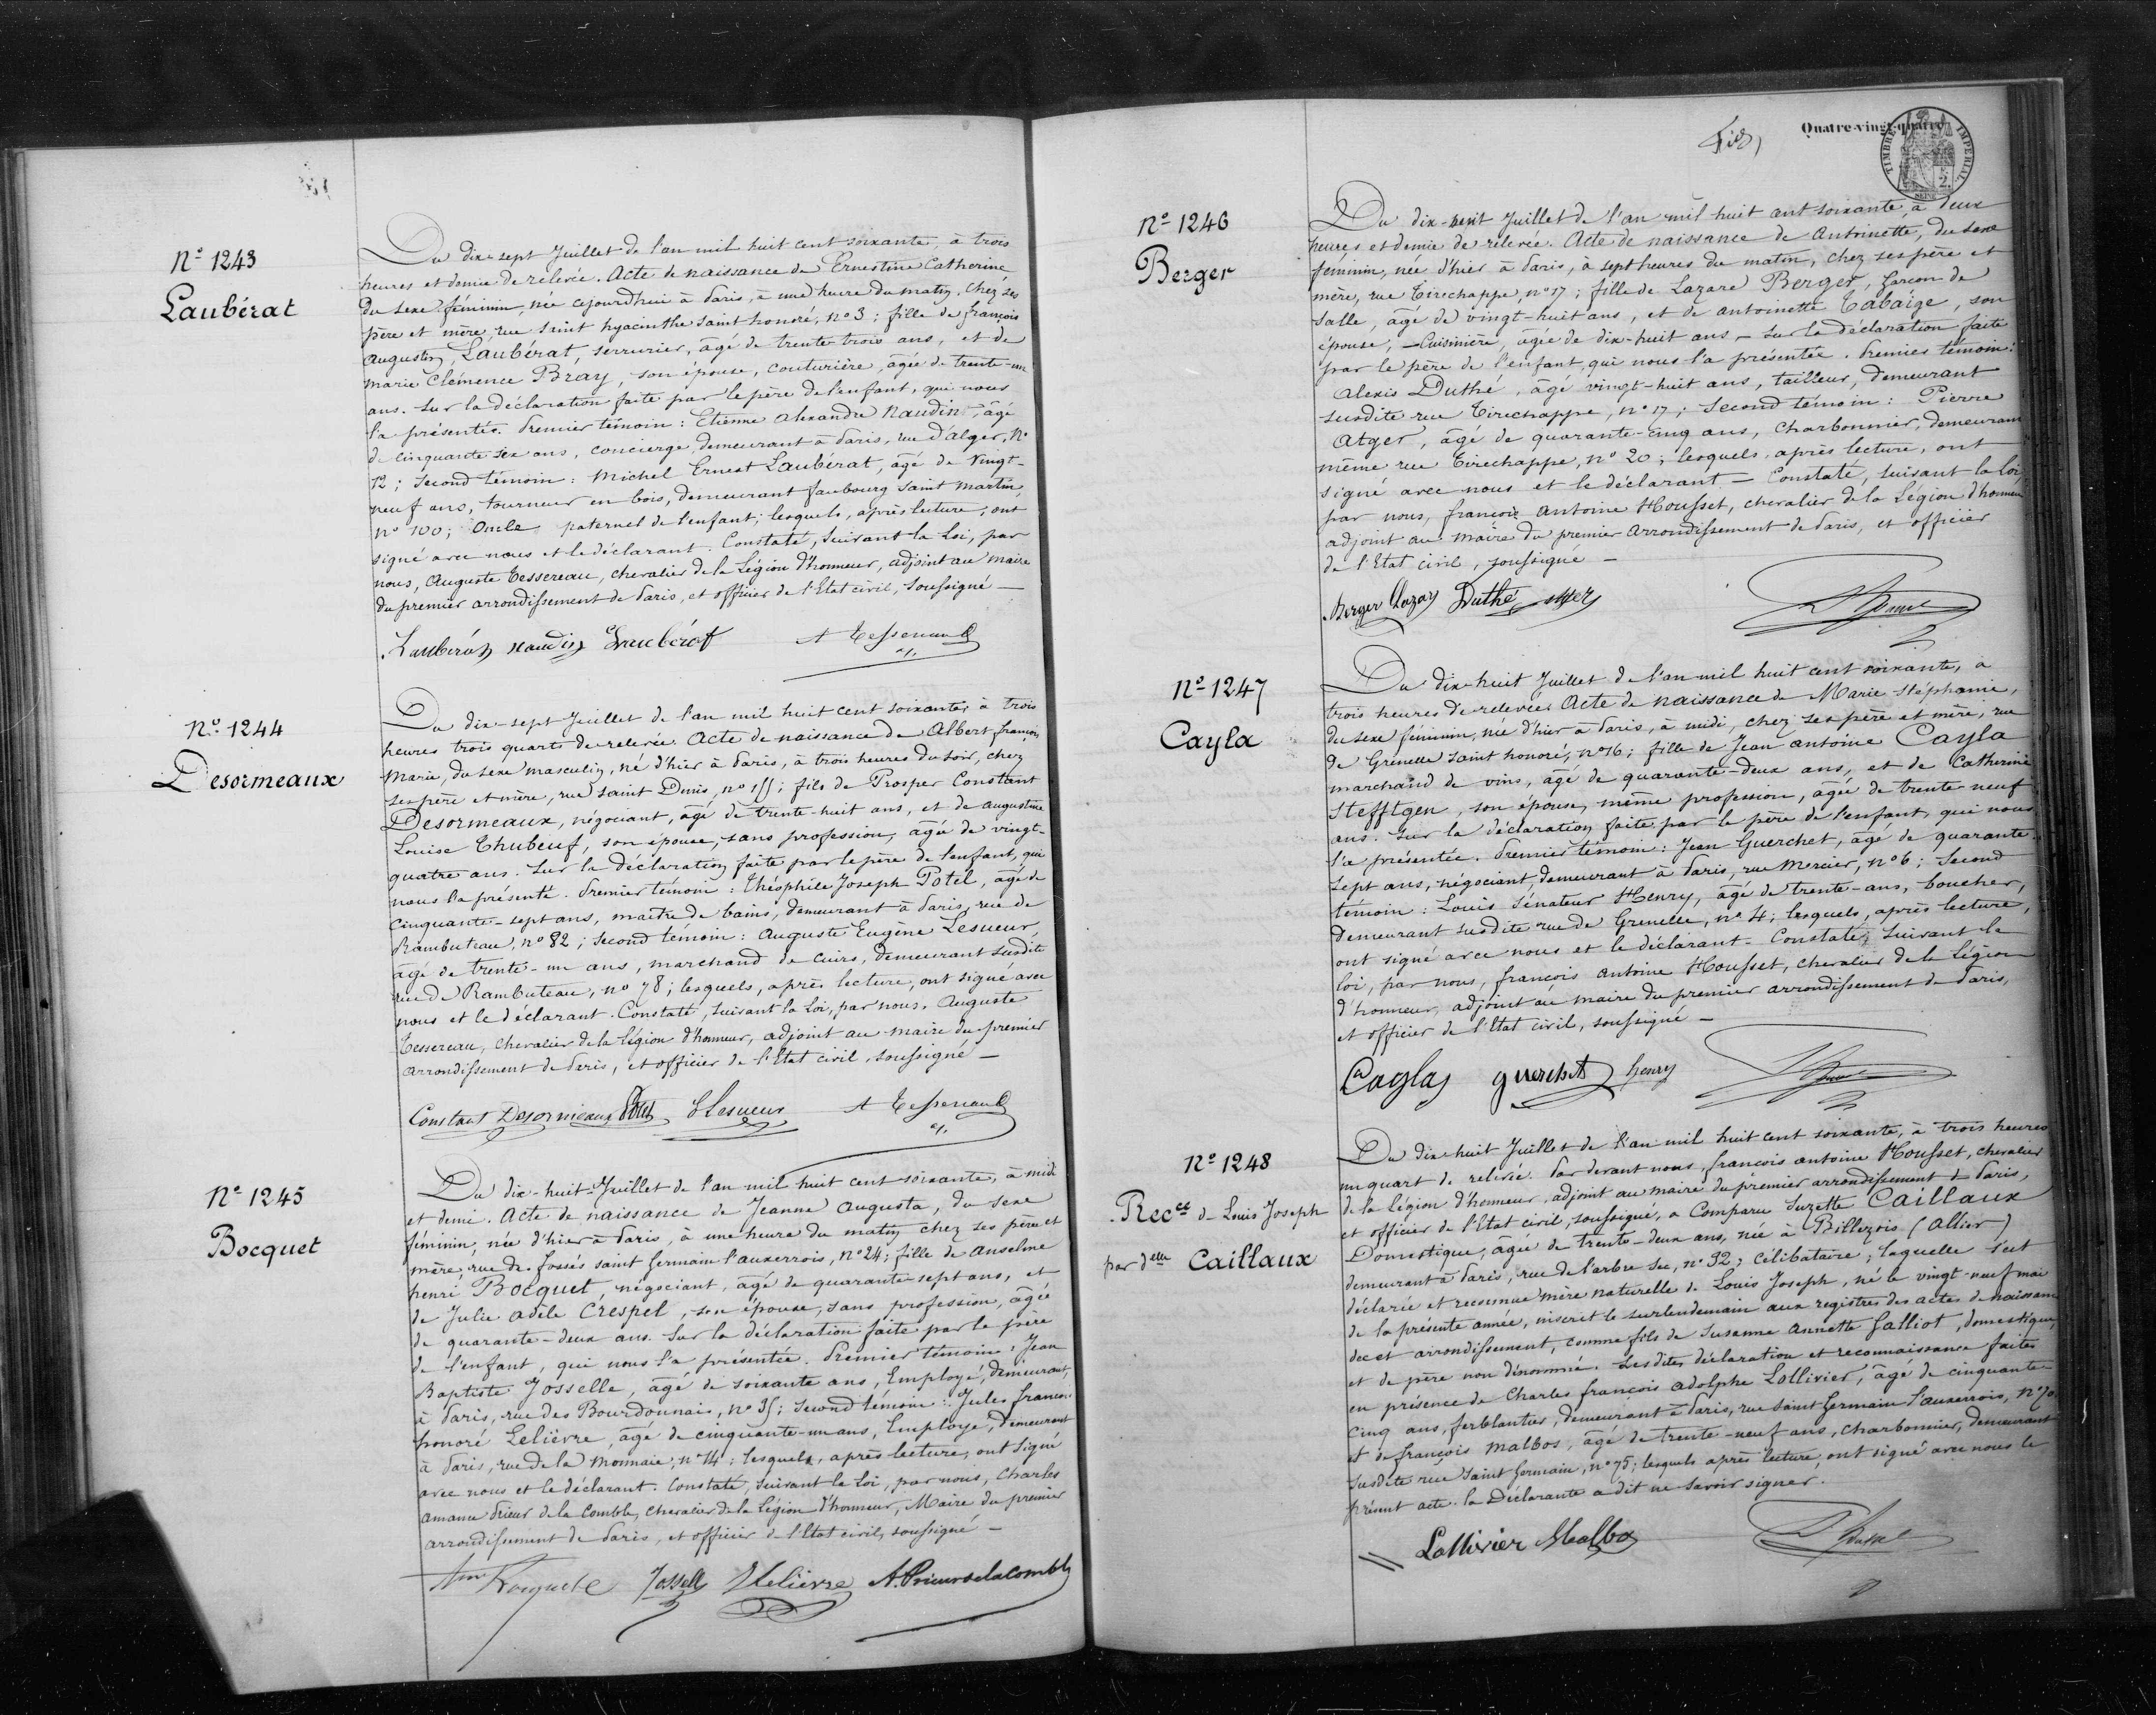 Nº 1243
Laubérat
Du dix-sept Juillet de l'an mil huit cent soixante, à trois
heures et demie de relevée. Acte de naissance de Ernestine Catherine
du sexe féminin, née cejourd'hui à Paris, à une heure du matin, chez ses
père et mère, rue saint hyacinthe saint honoré, nº 3; fille de françois
augustin Laubérat, serrurier, âgé de trente-trois ans, et de
marie Clémence Bray, son épouse, couturière, âgée de trente-un
ans. Sur la déclaration faite par le père de l'enfant, qui nous
l'a présentée. Premier témoin: Etienne alexandre Naudin, âgé
de cinquante six ans, concierge, demeurant à Paris, rue d'alger, Nº
12; second témoin: Michel Ernest Laubérat, âgé de vingt-
neuf ans, tourneur en bois, demeurant faubourg saint martin,
nº 100; Oncle paternel de l'enfant; lesquels, après lecture, ont
signé avec nous et le déclarant. Constaté, suivant la Loi, par
nous, Auguste Tessereau, chevalier de la Légion d'honneur, adjoint au maire
du premier arrondissement de Paris, et officier de l'Etat civil, soussigné —
Laubérat naudin Laubérat A Tessereau
Nº 1244
Desormeaux
Du dix-sept Juillet de l'an mil huit cent soixante, à trois
heures trois quarts de relevée. Acte de naissance de Albert françois
Marie, du sexe masculin, né d'hier à Paris, à trois heures du soir, chez
ses père et mère, rue saint Denis, nº 155; fils de Prosper Constant
Desormeaux, négociant, âgé de trente-huit ans, et de augustine
Louise Thubeuf, son épouse, sans profession, âgée de vingt-
quatre ans. Sur la déclaration faite par le père de l'enfant, qui
nous l'a présenté. Premier témoin: Théophile Joseph Potel, âgé de
cinquante-sept ans, maître de bains, demeurant à Paris, rue de
Rambuteau, nº 82; second témoin: Auguste Eugène Lesueur,
âgé de trente-un ans, marchand de cuirs, demeurant susdite
rue de Rambuteau, nº 78; lesquels, après lecture, ont signé avec
nous et le déclarant. Constaté, suivant la Loi, par nous, Auguste
Tessereau, chevalier de la Légion d'honneur, adjoint au maire du premier
arrondissement de Paris, et officier de l'Etat civil, soussigné —
Constant Desormeaux Potel E Lesueur A Tessereau
Nº 1245
Bocquet
Du dix-huit Juillet de l'an mil huit cent soixante, à midi
et demi. Acte de naissance de Jeanne Augusta, du sexe
féminin, née d'hier à Paris, à une heure du matin chez ses père et
mère, rue des fossés saint Germain l'auxerrois, nº 24; fille de anselme
henri Bocquet, négociant, âgé de quarante-sept ans, et
de Julie adèle Crespel, son épouse, sans profession, âgée
de quarante-deux ans. Sur la déclaration faite par le père
de l'enfant, qui nous l'a présentée. Premier témoin: Jean
Baptiste Josselle, âgé de soixante ans, Employé, demeurant
à Paris, rue des Bourdonnais, nº 35; second témoin: Jules françois
honoré Lelièvre, âgé de cinquante-un ans, Employé, demeurant
à Paris, rue de la Monnaie, nº 14; lesquels, après lecture, ont signé
avec nous et le déclarant. Constaté, suivant la Loi, par nous, Charles
amance Prieur de la Comble, chevalier de la Légion d'honneur, Maire du premier
arrondissement de Paris, et officier de l'Etat civil, soussigné —
Bocquet Josselle Lelièvre A. Prieur de la Comble
Quatre-vingt-quatre
TIMBRE IMPERIAL
SEINE
Nº 1246
Berger
Du dix-huit Juillet de l'an mil huit cent soixante, à deux
heures et demie de relevée. Acte de naissance de Antoinette, du sexe
féminin, née d'hier à Paris, à sept heures du matin, chez ses père et
mère, rue Tirechappe, nº 17; fille de Lazare Berger, garçon de
salle, âgé de vingt-huit ans, et de antoinette Tabaige, son
épouse, — Cuisinière, âgée de dix-huit ans — sur la déclaration faite
par le père de l'enfant, qui nous l'a présentée. Premier témoin:
Alexis Duthé, âgé vingt-huit ans, tailleur, demeurant
susdite rue Tirechappe, nº 17; second témoin: Pierre
Atger, âgé de quarante-cinq ans, charbonnier, demeurant
même rue Tirechappe, nº 20; lesquels, après lecture, ont
signé avec nous et le déclarant — Constaté, suivant la loi,
par nous, françois Antoine Housset, chevalier de la Légion d'honneur
adjoint au maire du premier arrondissement de Paris, et officier
de l'Etat civil, soussigné —
Berger Lazare Duthé atger
Nº 1247
Cayla
Du dix-huit Juillet de l'an mil huit cent soixante, à
trois heures de relevée. Acte de naissance de Marie Stéphanie,
du sexe féminin, née d'hier à Paris, à midi, chez ses père et mère, rue
de Grenelle saint honoré, nº 16; fille de Jean antoine Cayla
marchand de vins, âgé de quarante-deux ans, et de Catherine
Stefftgen, son épouse, même profession, âgée de trente-neuf
ans. Sur la déclaration faite par le père de l'enfant, qui nous
l'a présentée. Premier témoin: Jean Guerchet, âgé de quarante-
sept ans, négociant, demeurant à Paris, rue Mercier, nº 6; Second
témoin: Louis Sénateur Henry, âgé de trente-ans, boucher,
demeurant susdite rue de Grenelle, nº 4; lesquels, après lecture,
ont signé avec nous et le déclarant — Constaté, suivant la
loi, par nous, françois antoine Housset, chevalier de la Légion
d'honneur, adjoint au maire du premier arrondissement de Paris,
et officier de l'Etat civil, soussigné —
Cayla guerchet henry
Nº 1248
Recce de Louis Joseph
par delle Caillaux
Du dix-huit Juillet de l'an mil huit cent soixante, à trois heures
un quart de relevée. Par devant nous, françois antoine Housset, chevalier
de la Légion d'honneur, adjoint au maire du premier arrondissement de Paris,
et officier de l'Etat civil, soussigné, a Comparu Suzette Caillaux
Domestique, âgée de trente-deux ans, née à Billezois (Allier)
demeurant à Paris, rue de l'arbre sec, nº 32, célibataire; laquelle s'est
déclarée et reconnue mère naturelle de Louis Joseph, né le vingt-neuf mai
de la présente année, inscrit le surlendemain aux registres des actes de naissance
de cet arrondissement, comme fils de Susanne Annette Galliot, domestique,
et de père non dénommé. Lesdites déclaration et reconnaissance faites
en présence de Charles françois adolphe Lollivier, âgé de cinquante-
cinq ans, ferblantier, demeurant à Paris, rue Saint Germain l'auxerrois, nº 70
et de françois Malbos, âgé de trente-neuf ans, charbonnier, demeurant
susdite rue Saint Germain, nº 75; lesquels après lecture, ont signé avec nous le
présent acte. la Déclarante a dit ne savoir signer.
Lollivier Malbos